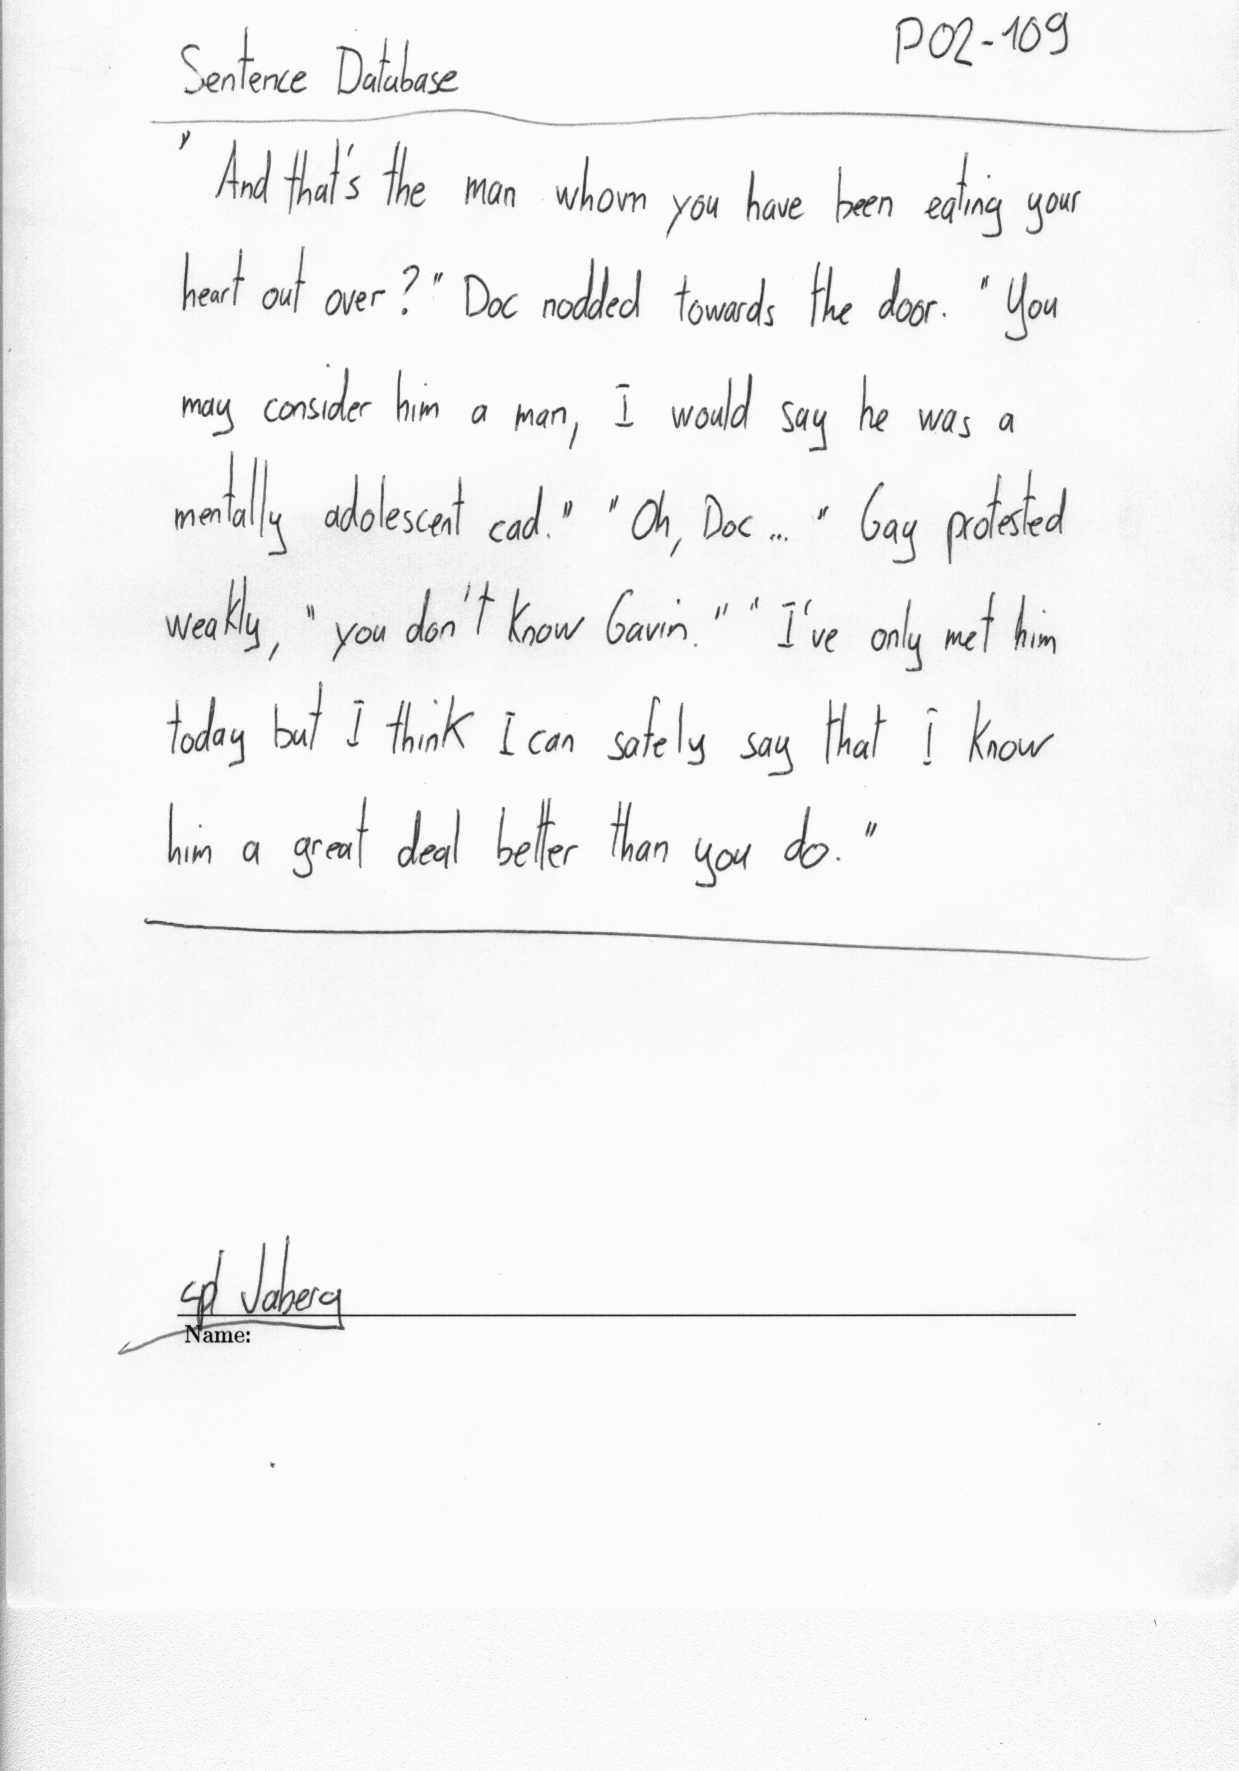 Sentence Database P02-109
"And that's the man whom you have been eating your
heart out over?" Doc nodded towards the door. "You
may consider him a man, I would say he was a
mentally adolescent cad." "Oh, Doc ..." Gay protested
weakly, "you don't know Gavin." "I've only met him
today but I think I can safely say that I know
him a great deal better than you do."
cpl Jaberg
Name: